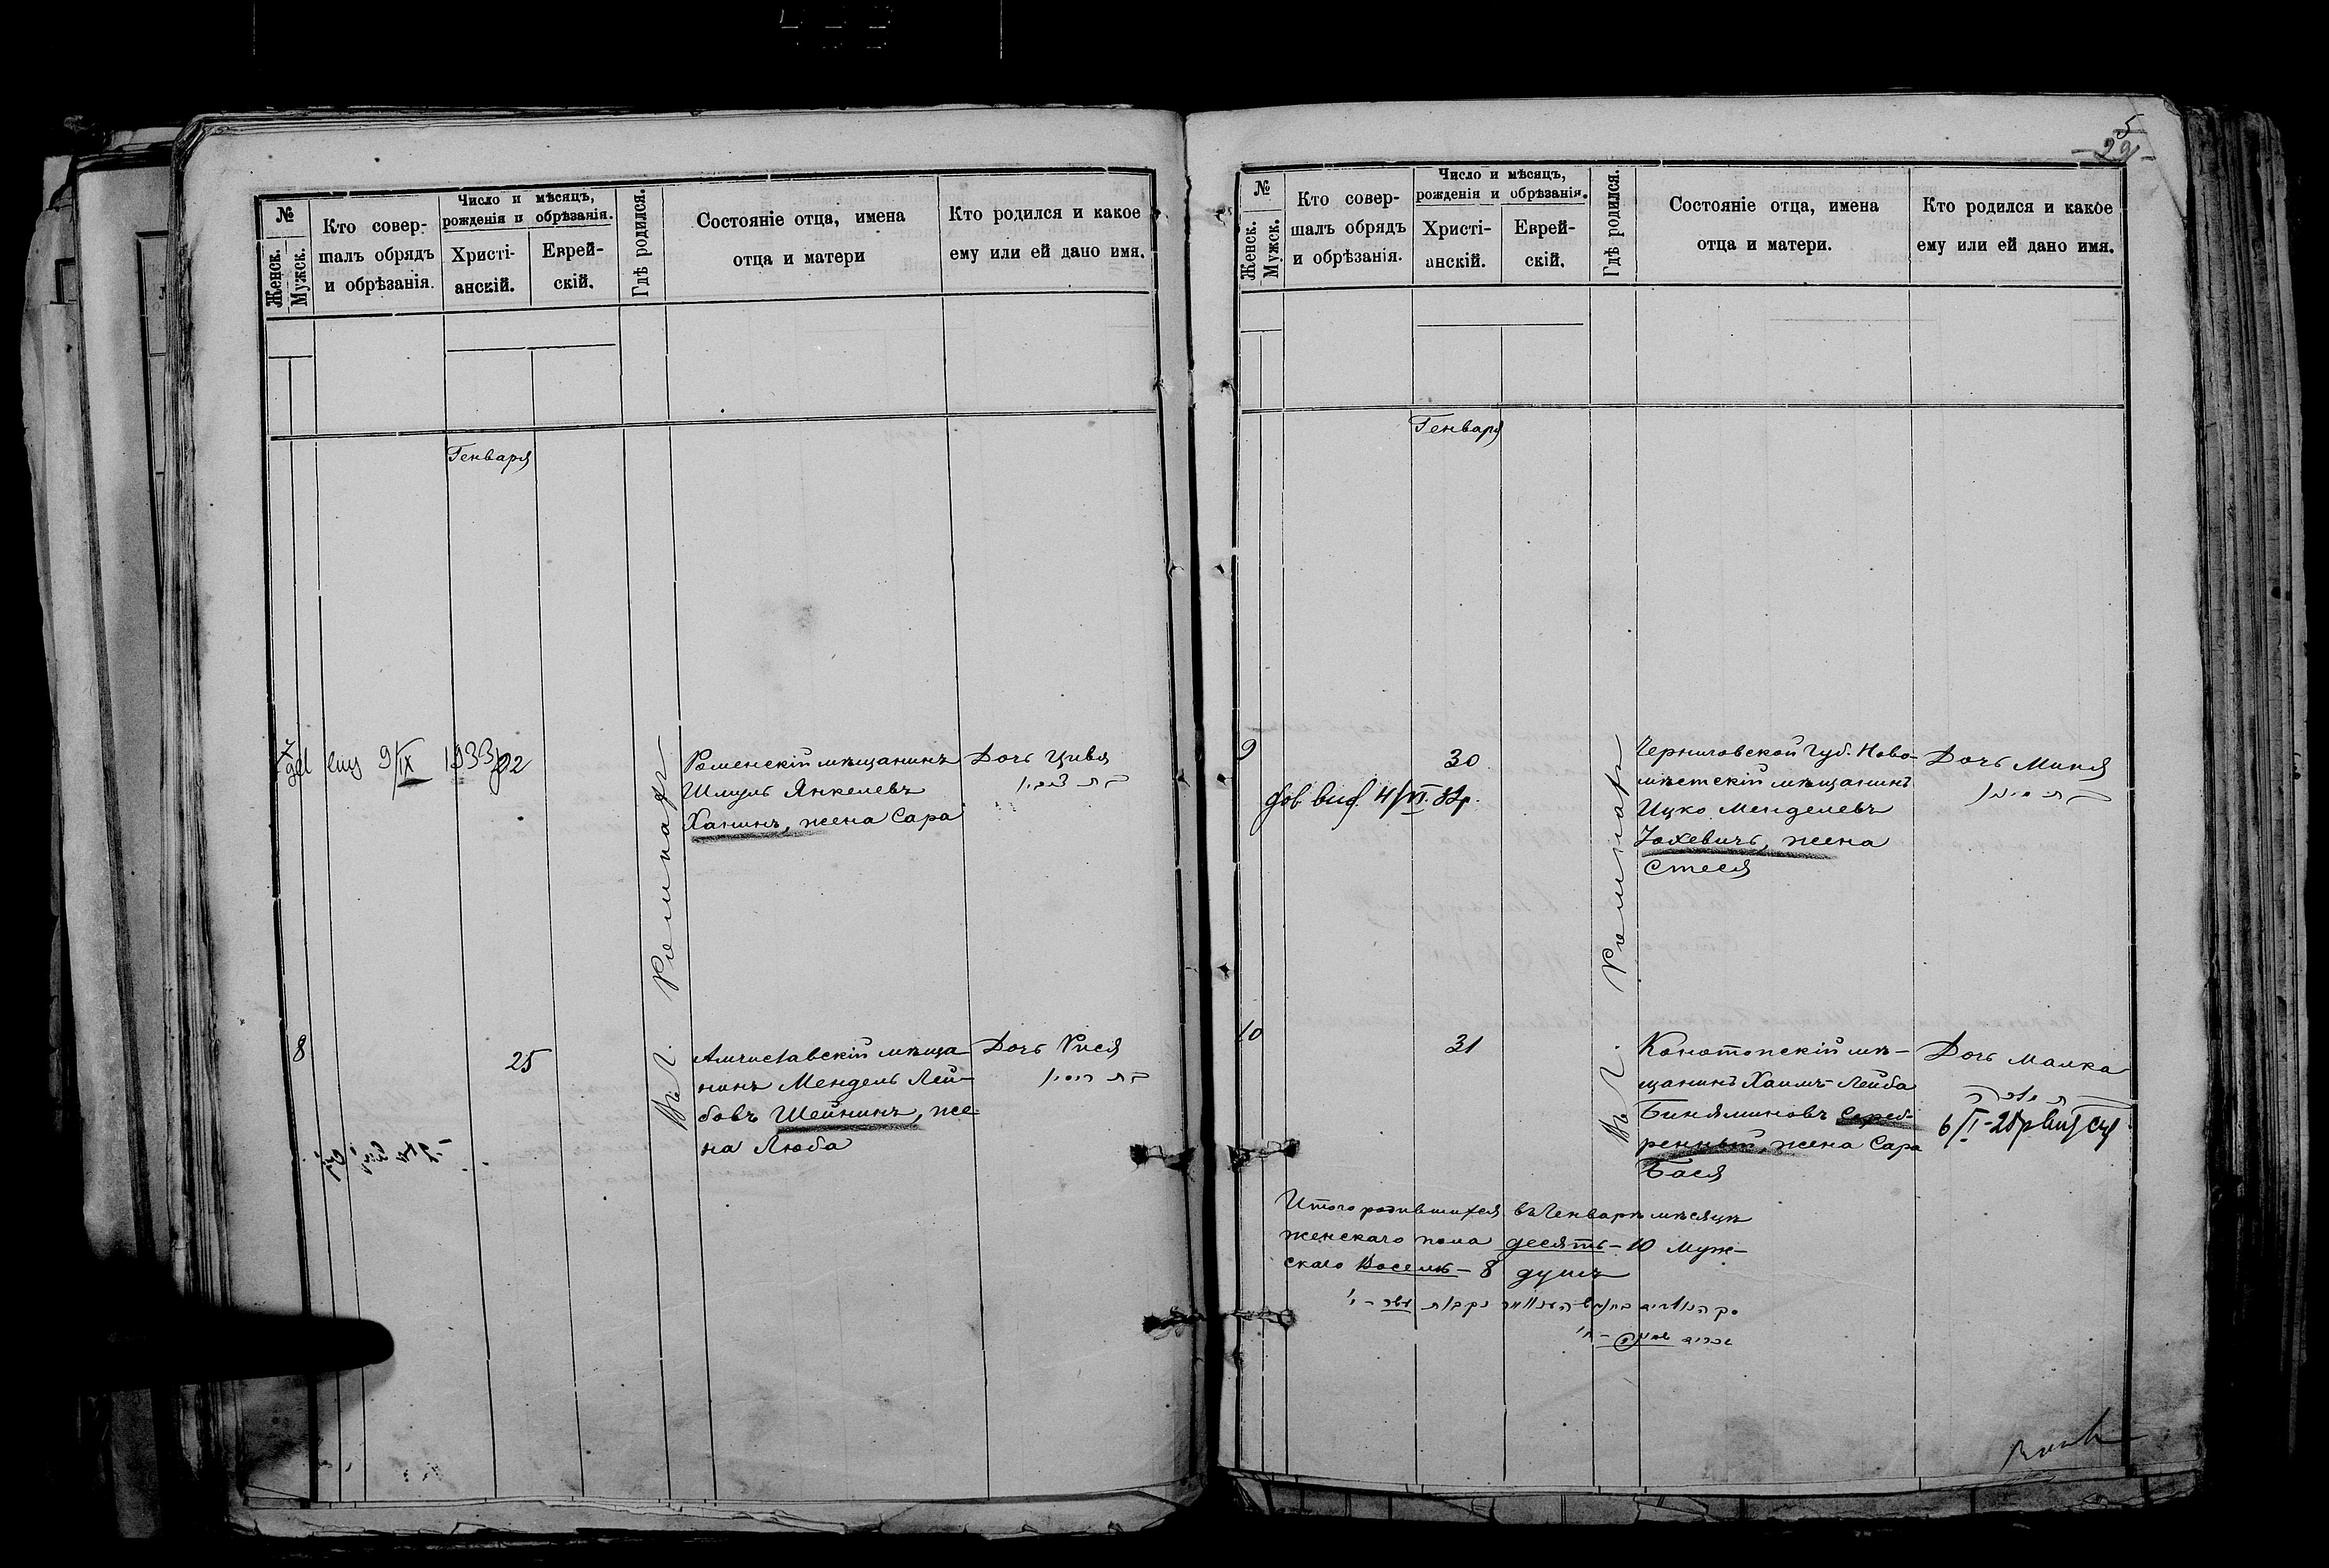 №
Женск.
Мужск.
Кто совер-
шалъ обрядъ
и обрѣзанія.
Число и мѣсяцъ,
рожденія и обрѣзанія.
Христі-
анскій.
Еврей-
скій.
Гдѣ родился.
Состояніе отца, имена
отца и матери
Кто родился и какое
ему или ей дано имя.
Генваря
7
9/IX 1933
22
Роменскій мѣщанинъ
Шмуль Янкелевъ
Ханинъ, жена Сара
Дочь Цивя
Въ г. Ромнахъ
8
25
Амчиславскій мѣща-
нинъ Мендель Лей-
бовъ Шейнинъ, же-
на Люба
Дочь Рися
5
29
№
Женск.
Мужск.
Кто совер-
шалъ обрядъ
и обрѣзанія.
Число и мѣсяцъ,
рожденія и обрѣзанія.
Христі-
анскій.
Еврей-
скій.
Гдѣ родился.
Состояніе отца, имена
отца и матери.
Кто родился и какое
ему или ей дано имя.
Генваря
9
30
Черниговской губ. Ново-
мѣстскій мѣщанинъ
Ицко Менделевъ
жена
Стеся
Дочь Миня
Въ г. Ромнахъ
10
31
Конотопскій мѣ-
щанинъ Хаимъ-Лейба
Биняминовъ Сереб-
ренный, жена Сара
Бася
Дочь Малка
Итого родившихся въ Генварѣ мѣсяцѣ
женскаго пола десять - 10 муж-
скаго восемь - 8 душъ